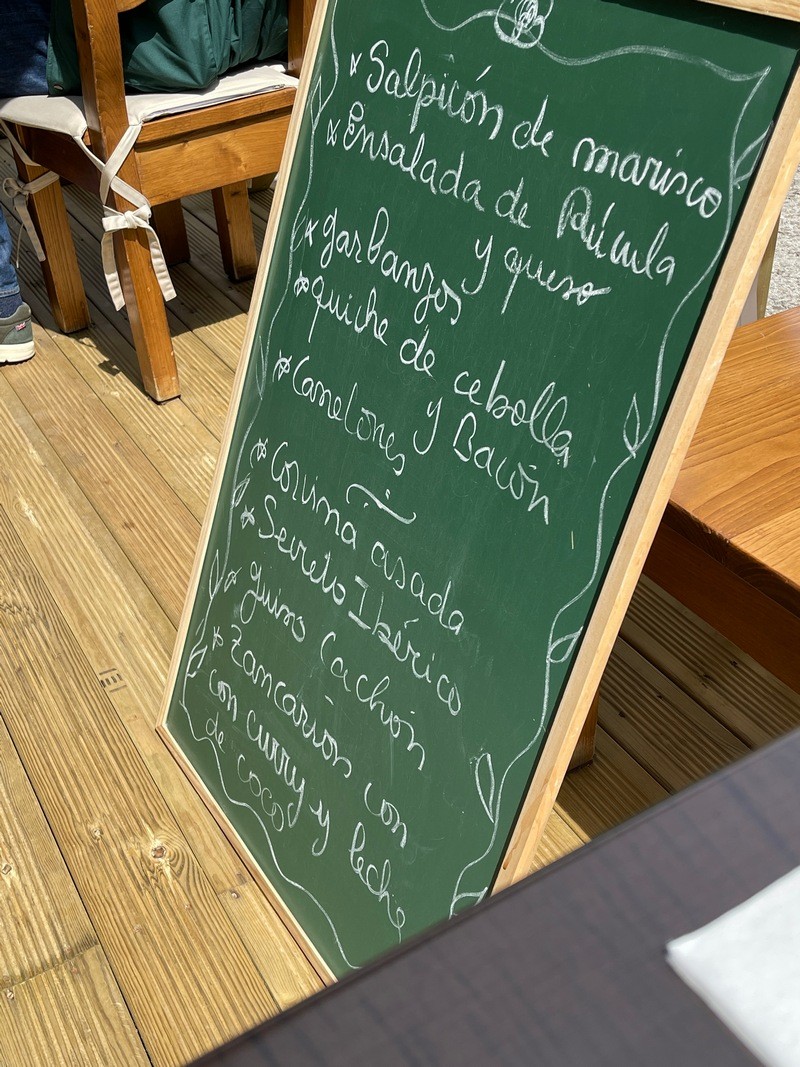 Salpicón de marisco
Ensalada de Rúcula
y queso
garbanzos
quiche de cebolla
y Bacón
Canelones
Corvina asada
Secreto Ibérico
guiso Cachón
Zancarrón con
con curry y leche
de coco